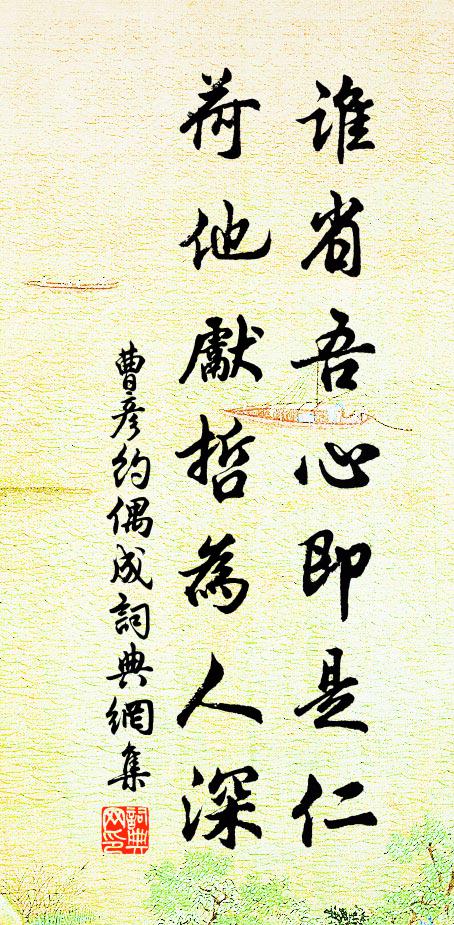 誰省吾心即是仁
荷他獻哲為人深
曹彥約偶成詞典網集
詞典网印